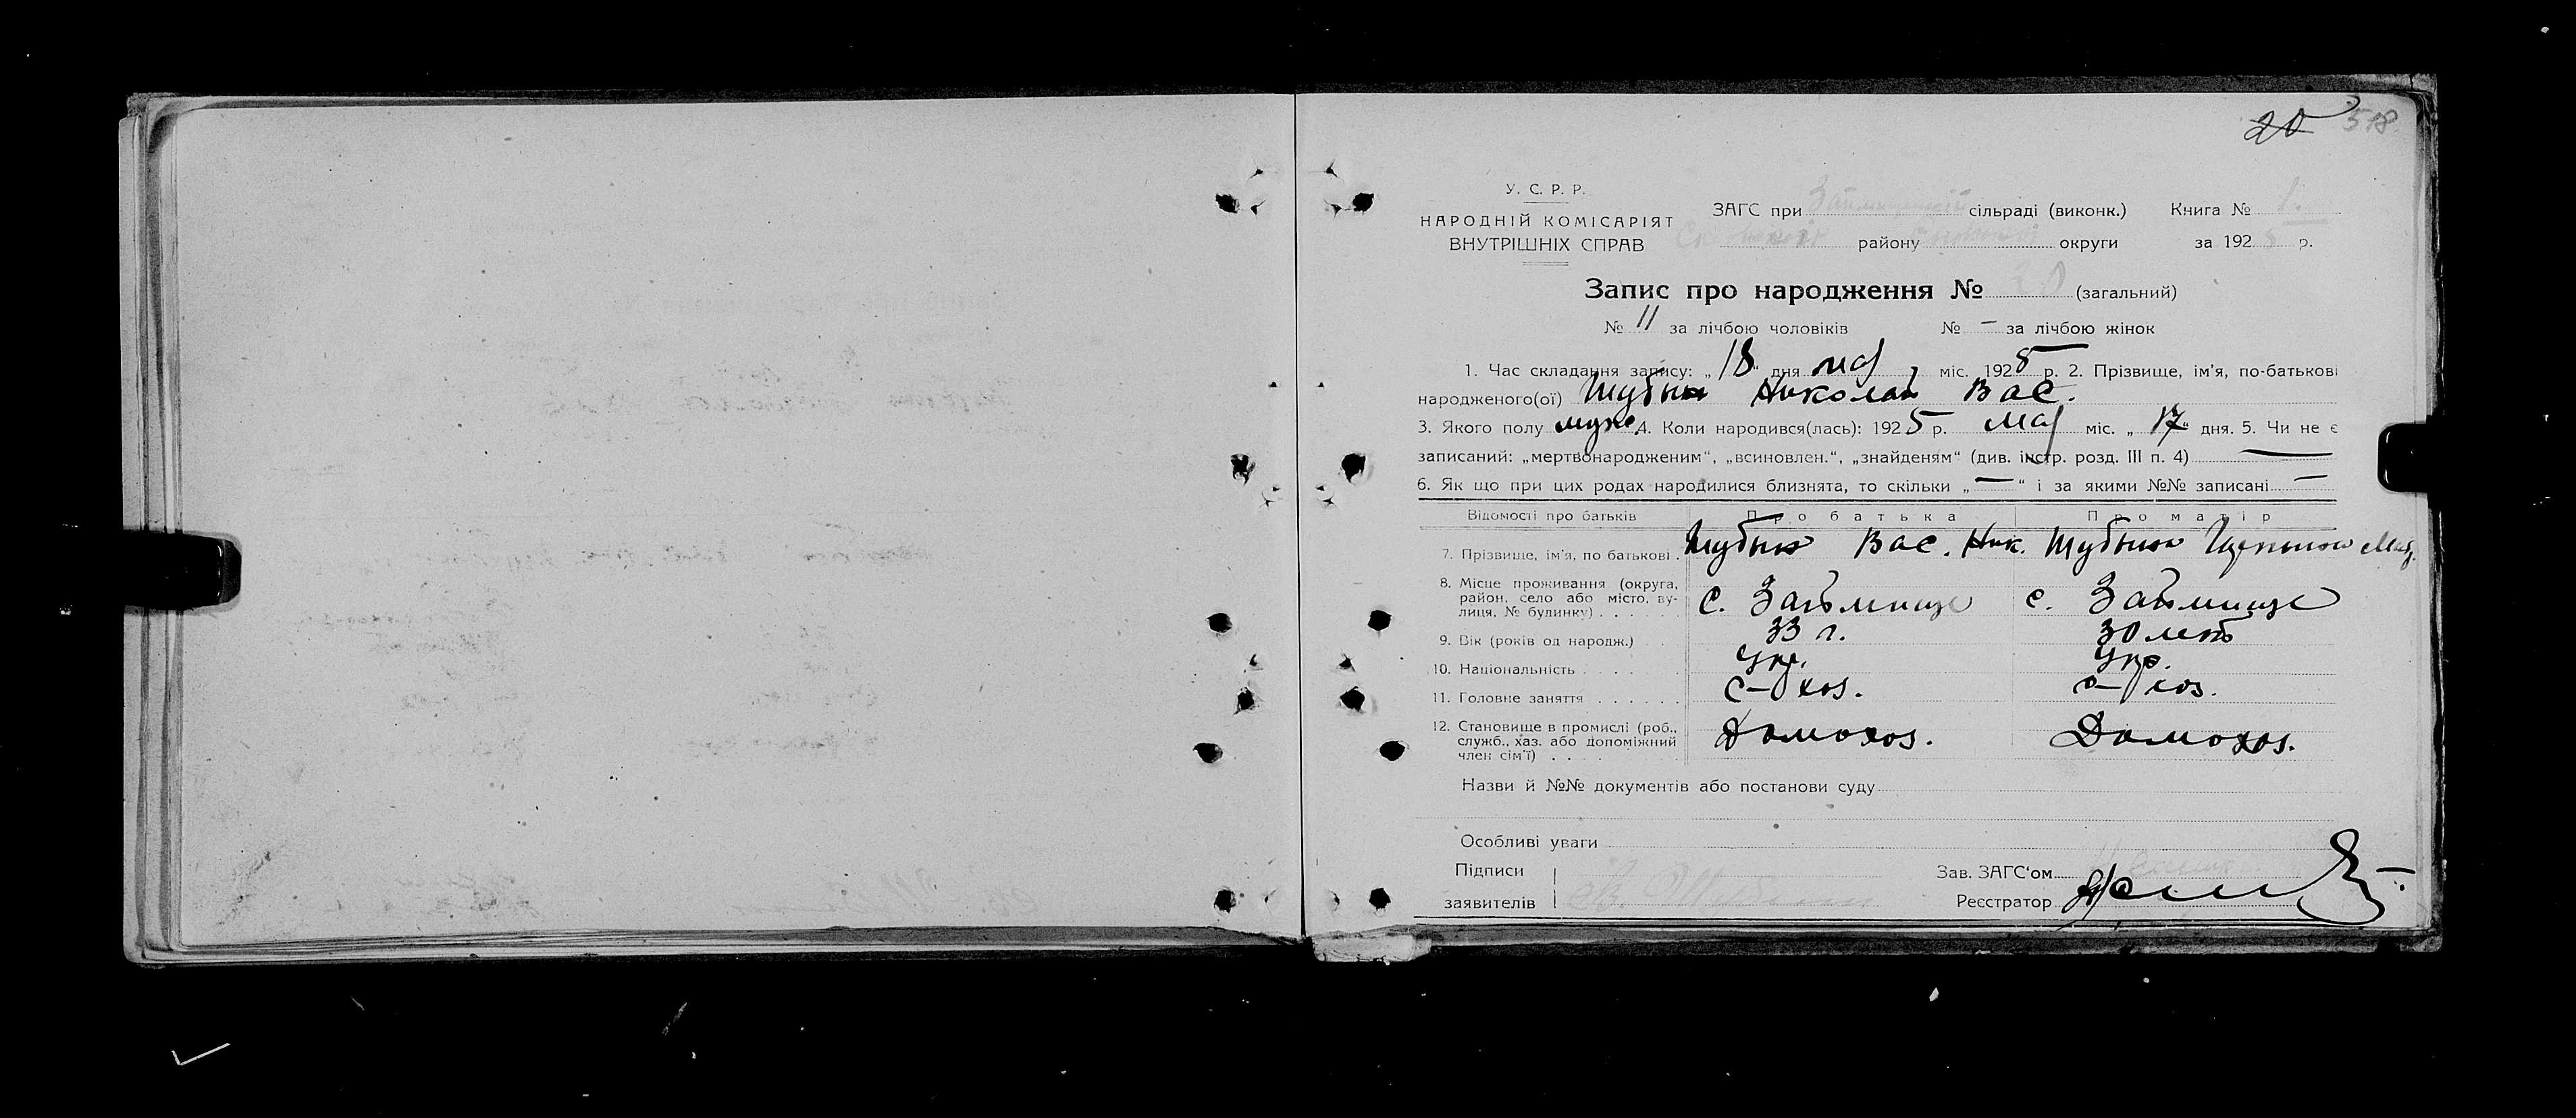 20 518
У. С. Р. Р.
НАРОДНІЙ КОМІСАРІЯТ
ВНУТРІШНІХ СПРАВ
ЗАГС при сільраді (виконк.) Книга № 1.
району округи за 192 р.
Запис про народження № 20 (загальний)
№ 11 за лічбою чоловіків № — за лічбою жінок
1. Час складання запису: „18“ дня мая міс. 1925 р. 2. Прізвище, ім'я, по-батькові
народженого(ої) Шубын Николай Вас.
3. Якого полу муж. 4. Коли народився(лась): 1925 р. мая міс. „17“ дня. 5. Чи не є
записаний: „мертвонародженим“, „всиновлен.“, „знайденям“ (див. інстр. розд. III п. 4) —
6. Як що при цих родах народилися близнята, то скільки „—“ і за якими №№ записані —
Відомості про батьків Про батька Про матір
7. Прізвище, ім'я, по батькові . Шубын Вас. Ник. Шубына
8. Місце проживання (округа,
район, село або місто, ву-
лиця, № будинку) . . . с. Займище с. Займище
9. Вік (років од народж.) . . 33 г. 30 летъ
10. Національність . . . . Укр. Укр.
11. Головне заняття . . . . . . с-хоз. с-хоз.
12. Становище в промислі (роб.,
служб., хаз. або допоміжний
член сім'ї) . . . . Домохоз. Домохоз.
Назви й №№ документів або постанови суду
Особливі уваги
Підписи
заявителів Шубын
Зав. ЗАГС'ом
Реєстратор